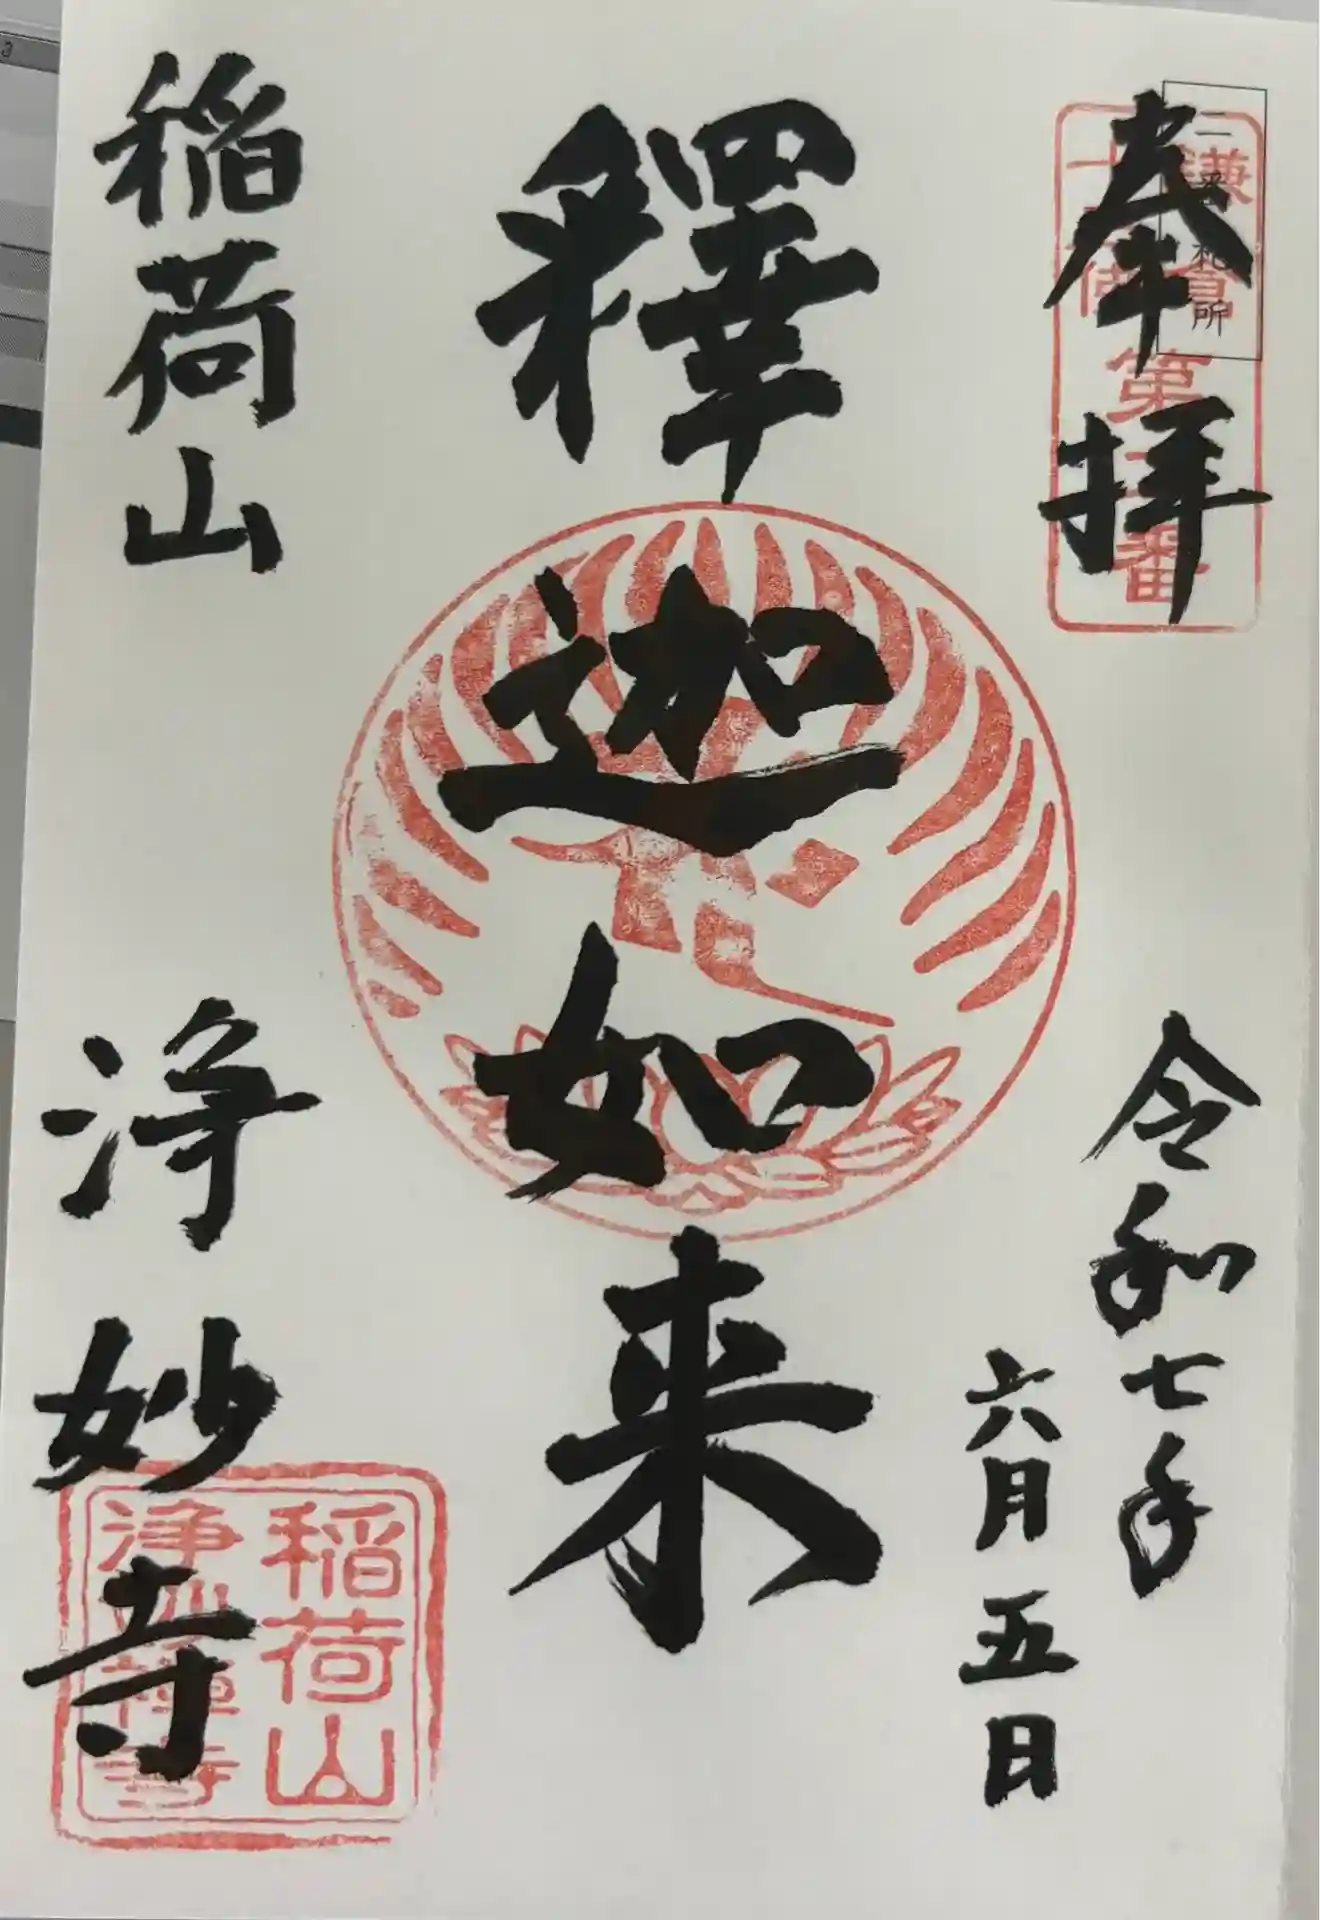 奉拝
鎌倉
十三佛
第二番
令和七年
六月五日
釋迦如来
稲荷山
浄妙寺
稲荷山
浄妙禅寺